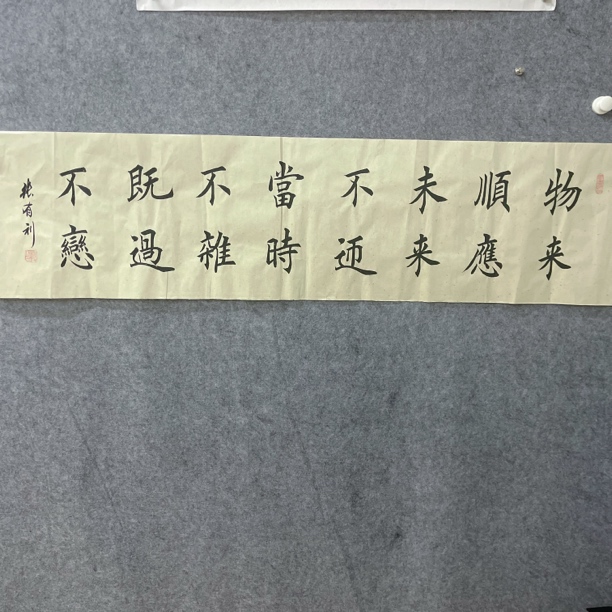 物来
順應
未来
不迊
當時
不雜
既過
不戀
張有利